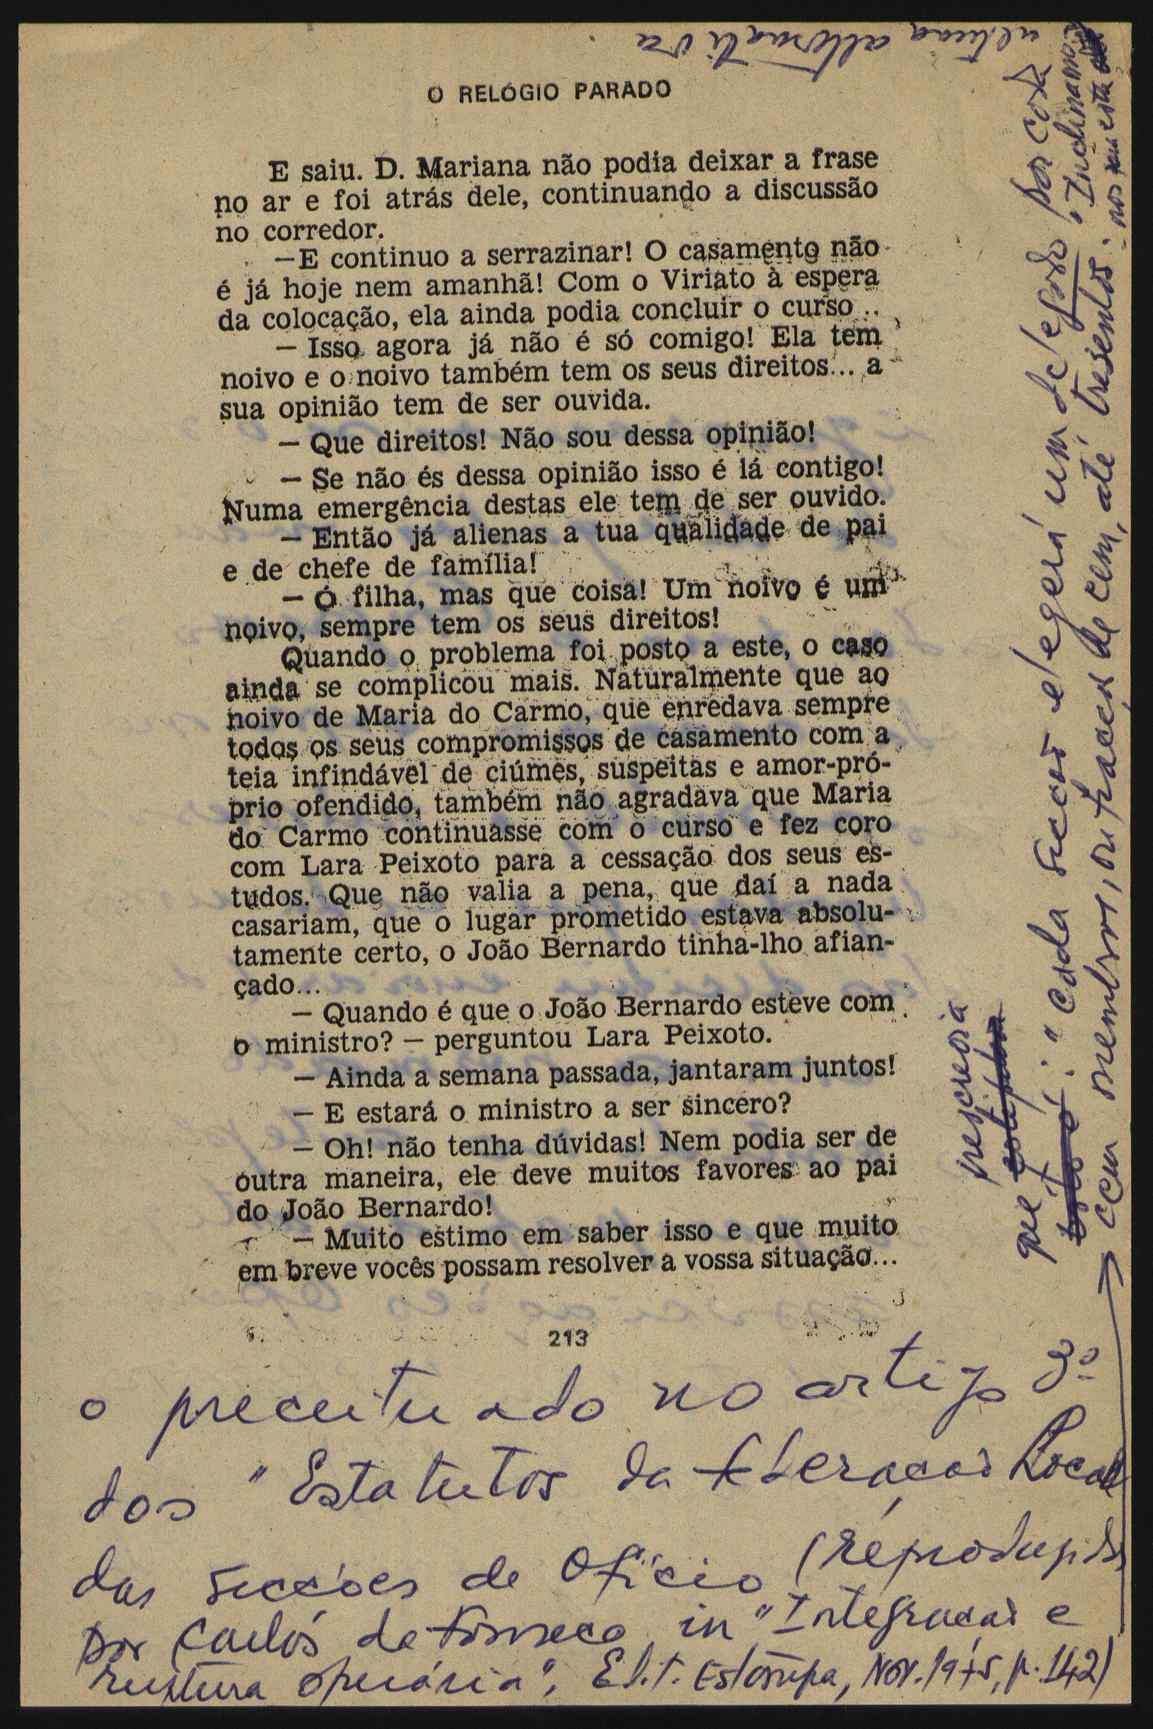 O RELÓGIO PARADO
E saiu. D. Mariana não podia deixar a frase
no ar e foi atrás dele, continuando a discussão
no corredor.
—E continuo a serrazinar! O casamento não
é já hoje nem amanhã! Com o Viriato à espera
da colocação, ela ainda podia concluir o curso...
— Isso agora já não é só comigo! Ela tem
noivo e o noivo também tem os seus direitos... a
sua opinião tem de ser ouvida.
— Que direitos! Não sou dessa opinião!
— Se não és dessa opinião isso é lá contigo!
Numa emergência destas ele tem de ser ouvido.
— Então já alienas a tua qualidade de pai
e de chefe de família!
— Ó filha, mas que coisa! Um noivo é um
noivo, sempre tem os seus direitos!
Quando o problema foi posto a este, o caso
ainda se complicou mais. Naturalmente que ao
noivo de Maria do Carmo, que enredava sempre
todos os seus compromissos de casamento com a
teia infindável de ciúmes, suspeitas e amor-pró-
prio ofendido, também não agradava que Maria
do Carmo continuasse com o curso e fez coro
com Lara Peixoto para a cessação dos seus es-
tudos. Que não valia a pena, que daí a nada
casariam, que o lugar prometido estava absolu-
tamente certo, o João Bernardo tinha-lho afian-
çado...
— Quando é que o João Bernardo esteve com
o ministro? — perguntou Lara Peixoto.
— Ainda a semana passada, jantaram juntos!
— E estará o ministro a ser sincero?
— Oh! não tenha dúvidas! Nem podia ser de
outra maneira, ele deve muitos favores ao pai
do João Bernardo!
— Muito estimo em saber isso e que muito
em breve vocês possam resolver a vossa situação...
213
o preceituado no artigo 8.º
dos "Estatutos da Federação Local
das Secções de Ofício (reproduzidos
por Carlos da Fonseca in "Integração e
ruptura operária", Edit. Estampa, Nov. 1975, p. 142)
prescrevia
que : "cada secção elegerá um delegado por cada
cem membros, ou fracção de cem, até trezentos".
Inclinamo-
nos nesta
última alternativa.